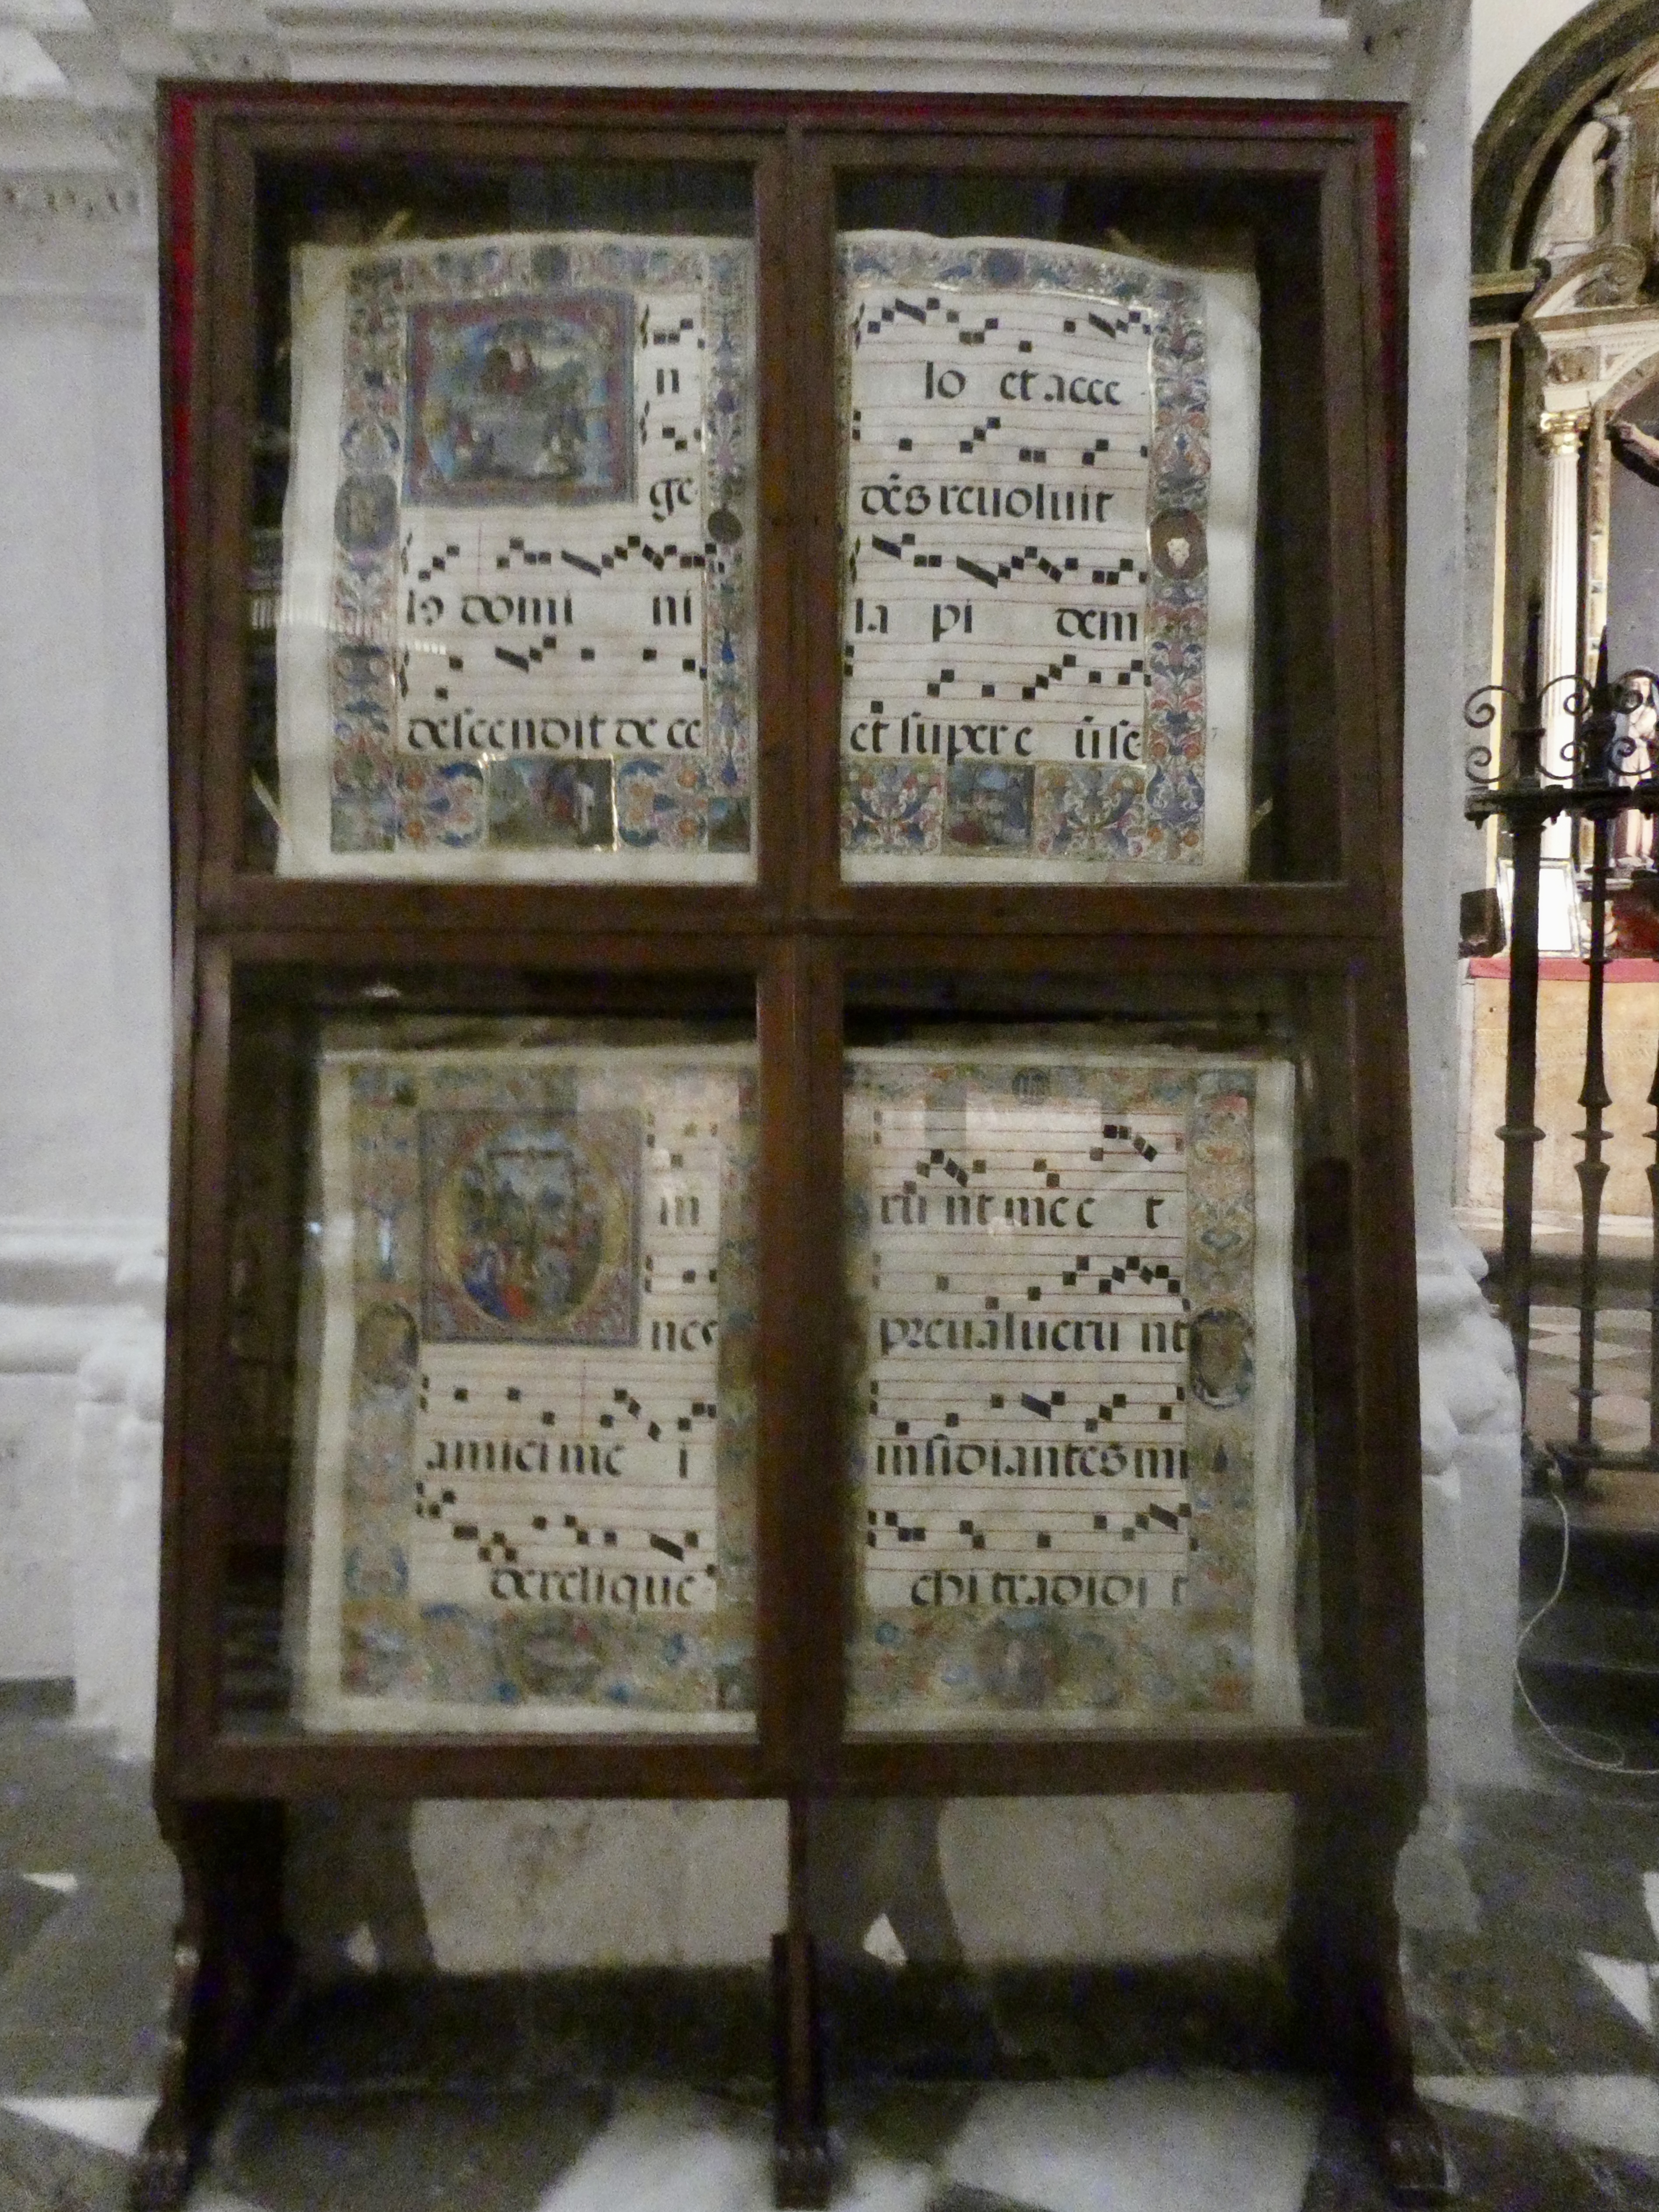 n
ge
lo domi ni
descendit de ce
lo et acce
dēs reuoluit
la pi dem
et super eū se
m
nes
amici me i
derelique
rū nt me e t
preualueru nt
insidiantes mi
chi tradidi t